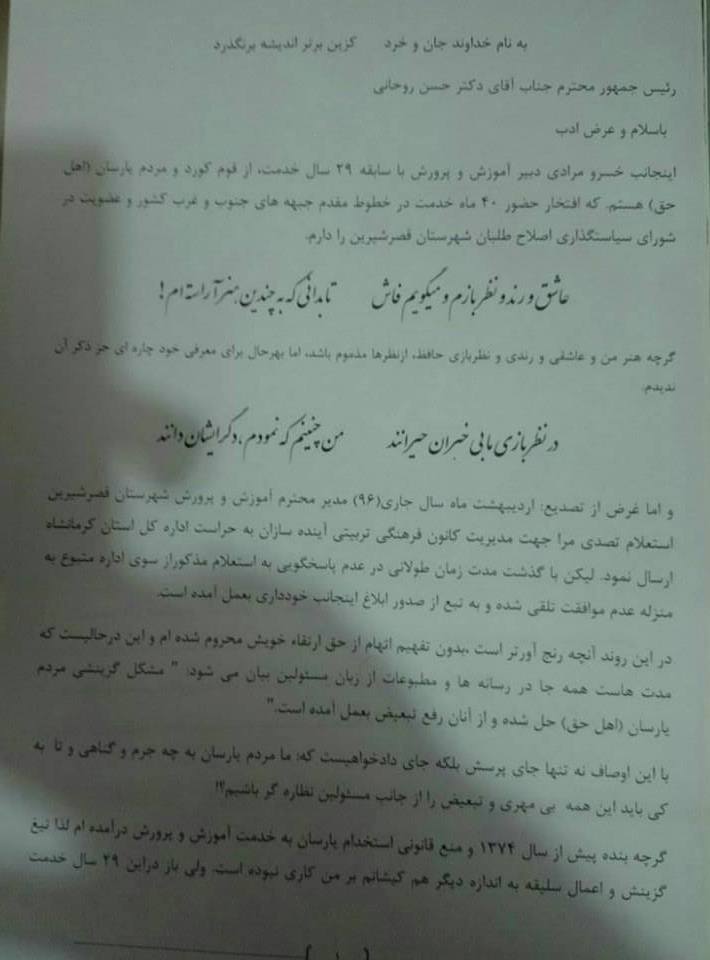 به نام خداوند جان و خرد کزین برتر اندیشه برنگذرد
رئیس جمهور محترم جناب آقای دکتر حسن روحانی
باسلام و عرض ادب
اینجانب خسرو مرادی دبیر آموزش و پرورش با سابقه ۲۹ سال خدمت، از قوم کورد و مردم یارسان (اهل
حق) هستم. که افتخار حضور ۴۰ ماه خدمت در خطوط مقدم جبهه های جنوب و غرب کشور و عضویت در
شورای سیاستگذاری اصلاح طلبان شهرستان قصرشیرین را دارم.
عاشق و رند و نظربازم و میگویم فاش تا بدانی که به چندین هنر آراسته ام!
گرچه هنر من و عاشقی و رندی و نظربازی حافظ، ازنظرها مذموم باشد، اما بهرحال برای معرفی خود چاره ای جز ذکر آن
ندیدم.
در نظربازی ما بی خبران حیرانند من چنینم که نمودم، دگر ایشان دانند
و اما غرض از تصدیع: اردیبهشت ماه سال جاری(۹۶) مدیر محترم آموزش و پرورش شهرستان قصرشیرین
استعلام تصدی مرا جهت مدیریت کانون فرهنگی تربیتی آینده سازان به حراست اداره کل استان کرمانشاه
ارسال نمود. لیکن با گذشت مدت زمان طولانی در عدم پاسخگویی به استعلام مذکوراز سوی اداره متبوع به
منزله عدم موافقت تلقی شده و به تبع از صدور ابلاغ اینجانب خودداری بعمل آمده است.
در این روند آنچه رنج آورتر است ،بدون تفهیم اتهام از حق ارتقاء خویش محروم شده ام و این درحالیست که
مدت هاست همه جا در رسانه ها و مطبوعات از زبان مسئولین بیان می شود: " مشکل گزینشی مردم
یارسان (اهل حق) حل شده و از آنان رفع تبعیض بعمل آمده است."
با این اوصاف نه تنها جای پرسش بلکه جای دادخواهیست که: ما مردم یارسان به چه جرم و گناهی و تا به
کی باید این همه بی مهری و تبعیض را از جانب مسئولین نظاره گر باشیم؟!
گرچه بنده پیش از سال ۱۳۷۴ و منع قانونی استخدام یارسان به خدمت آموزش و پرورش درآمده ام لذا تیغ
گزینش و اعمال سلیقه به اندازه دیگر هم کیشانم بر من کاری نبوده است. ولی باز دراین ۲۹ سال خدمت